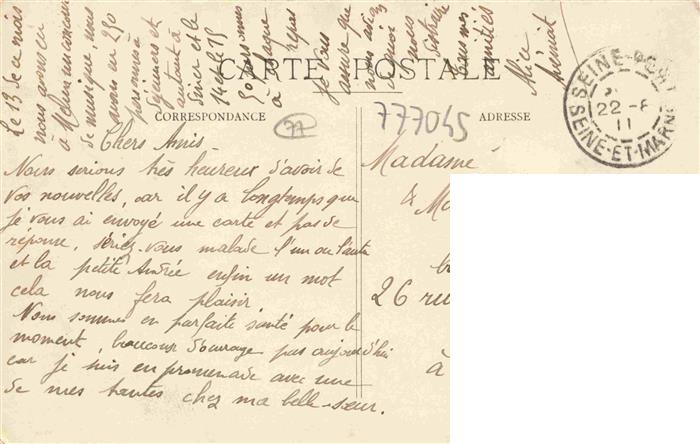 CARTE POSTALE
CORRESPONDANCE
ADRESSE
77
777045
SEINE-PORT
22-8
11
SEINE-ET-MARNE
Chers Amis.
Nous serions très heureux d'avoir de
vos nouvelles, car il y a longtemps que
je vous ai envoyé une carte et pas de
réponse, seriez-vous malade l'un ou l'autre
et la petite Andrée enfin un mot
cela nous fera plaisir
Nous sommes en parfaite santé pour le
moment, beaucoup d'ouvrage pas aujourd'hui
car je suis en promenade avec une
de mes tantes chez ma belle-sœur.
Le 13 de ce mois
nous avons eu
à Melun un concours
de musique, nous
avons eu 250
personnes à
déjeuner et
autant à
diner et le
14 et le 15
90 personnes
à chaque
repas
je vous
assure que
nous avons
nos
amitiés
Alice
Madame
& M
26 ru
à